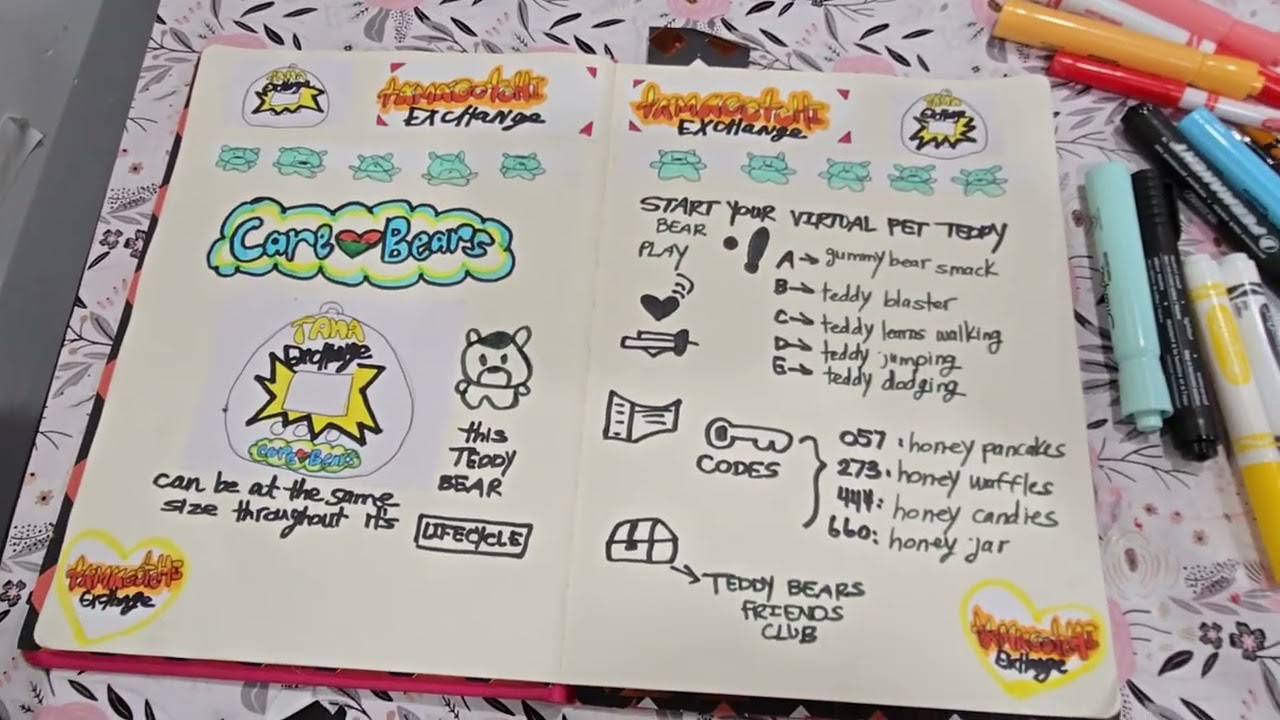 TAMA
Exchange
TAMAGOTCHI
EXCHange
Care Bears
TAMA
Exchange
Care Bears
this
TEDDY
BEAR
can be at the same
size throughout it's
LIFECYCLE
TAMAGOTCHI
Exchange
TAMAGOTCHI
EXCHange
TAMA
Exchange
START YOUR VIRTUAL PET TEDDY
BEAR
PLAY
!
A→ gummy bear smack
B→ teddy blaster
C→ teddy learns walking
D→ teddy jumping
E→ teddy dodging
CODES
057: honey pancakes
273: honey waffles
444: honey candies
660: honey jar
TEDDY BEARS
FRIENDS
CLUB
TAMAGOTCHI
Exchange